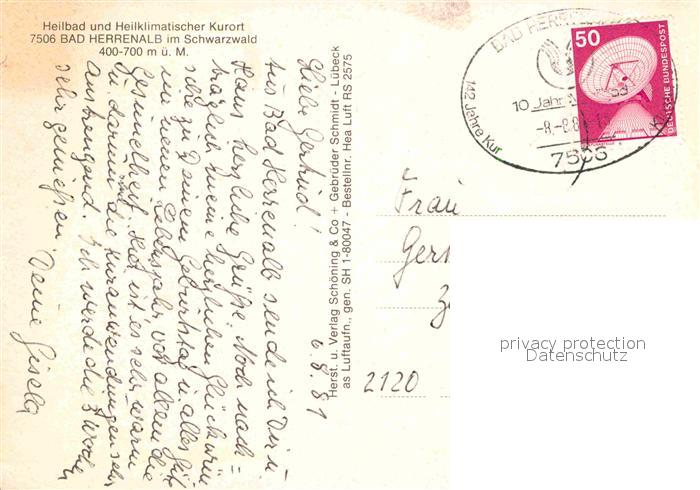 Heilbad und Heilklimatischer Kurort
7506 BAD HERRENALB im Schwarzwald
400-700 m ü. M.
Herst. u. Verlag Schöning & Co + Gebrüder Schmidt - Lübeck
as Luftaufn., gen. SH 1-80047 - Bestellnr. Hea Luft RS 2575
6.8.81
Liebe Gertrud!
Aus Bad Herrenalb sende ich Dir u.
Hans herzliche Grüße. Noch nach=
träglich meine herzlichen Glückwün
sche zu Deinem Geburtstag u. alles Gute
im neuen Lebensjahr, vor allem die
Gesundheit. Hier ist es sehr warm
u. dann sind die Kuranwendungen sehr
anstrengend. Ich werde die 3 Wochen
sehr genießen.
Deine Gisela
BAD HERREN
142 Jahre Kur
10 Jahr
7506
50
DEUTSCHE BUNDESPOST
Frau
Ger
2120
privacy protection
Datenschutz